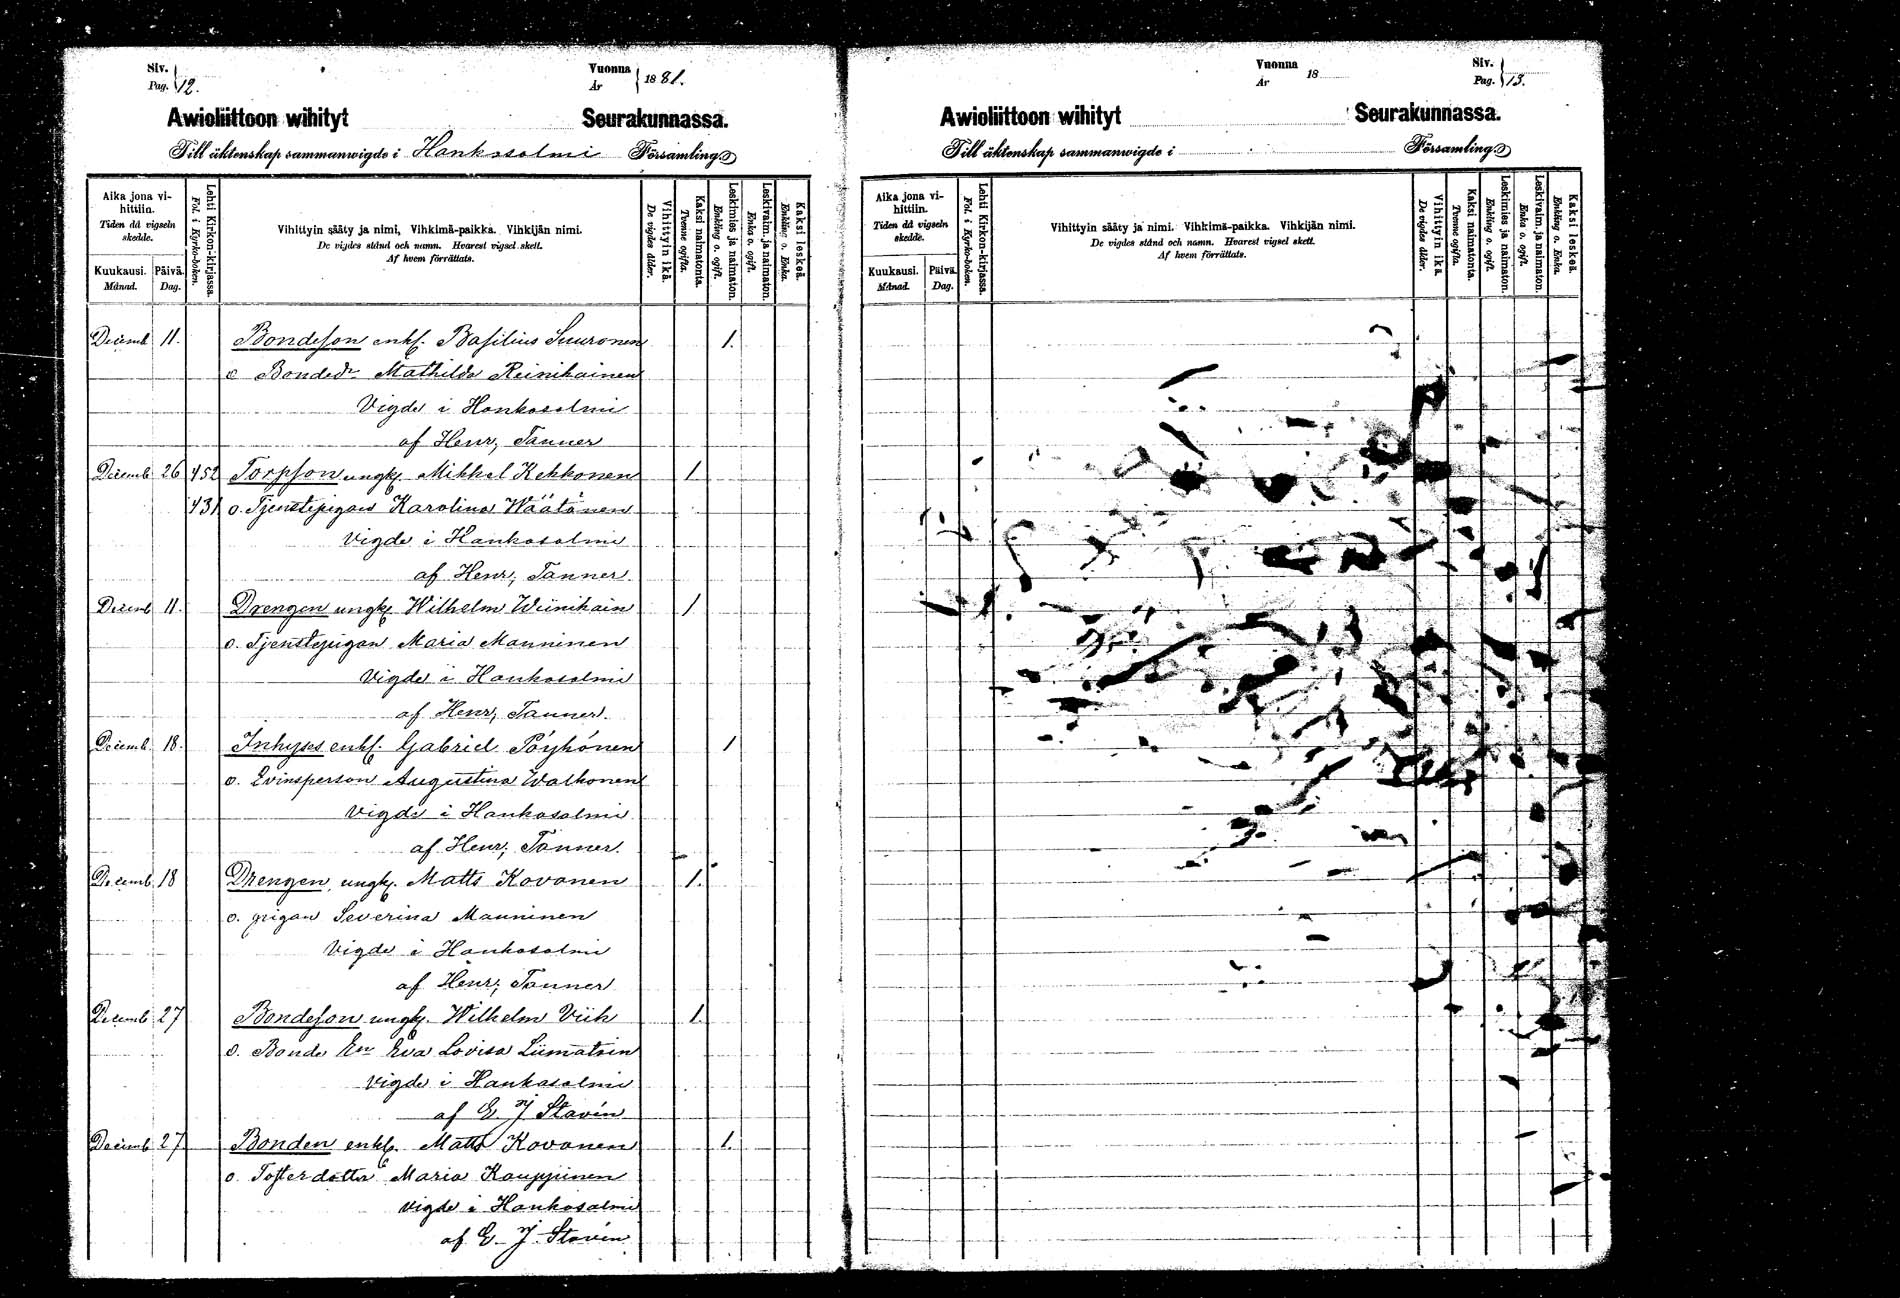 Siv.
Pag. 12.
Vuonna
År 1881.
Awioliittoon wihityt Seurakunnassa.
Till äktenskap sammanwigde i Hankasalmi Församling
Aika jona vihittiin.
Tiden då vigseln skedde.
Kuukausi. Månad.
Päivä. Dag.
Lehti Kirkon-kirjassa.
Fol. i Kyrko-boken.
Vihittyin sääty ja nimi, Vihkimä-paikka. Vihkijän nimi.
De vigdes stånd och namn. Hvarest vigsel skett.
Af hvem förrättats.
Vihittyin ikä.
De vigdes ålder.
Kaksi naimatonta.
Tvenne ogifta.
Leskimies ja naimaton.
Enkling o. ogift.
Leskivaim. ja naimaton.
Enka o. ogift.
Kaksi leskeä.
Enkling o. Enka.
Decemb 11. Bondeson enkl. Basilius Suuronen 1.
o Bonded:r Mathilda Reinikainen
Vigde i Hankasalmi
af Henr; Tanner
Decemb 26 452 Torpson ungk. Mikkel Kekkonen 1
431 o. Tjenstepigan Karolina Wäätänen
Vigde i Hankasalmi
af Henr; Tanner
Decemb 11. Drengen ungk. Wilhelm Weinikain 1
o. Tjenstepigan Maria Manninen
Vigde i Hankasalmi
af Henr; Tanner.
Decemb 18. Inhyses enkl. Gabriel Pöyhönen 1
o. Qvinsperson Augustina Walkonen
Vigde i Hankasalmi
af Henr; Tanner.
Decemb 18 Drengen ungk. Matts Kovanen 1.
o. pigan Severina Manninen
Vigde i Hankasalmi
af Henr; Tanner
Decemb 27 Bondeson ungk. Wilhelm Viik 1.
o. Bonde En Eva Lovisa Liimatain
Vigde i Hankasalmi
af E J Stavén
Decemb 27 Bonden enkl. Matts Kovanen 1.
o. Fosterdotter Maria Kauppinen
Vigde i Hankasalmi
af E. J. Stavén
Vuonna
År 18
Siv.
Pag. 13.
Awioliittoon wihityt Seurakunnassa.
Till äktenskap sammanwigde i Församling
Aika jona vihittiin.
Tiden då vigseln skedde.
Kuukausi. Månad.
Päivä. Dag.
Lehti Kirkon-kirjassa.
Fol. i Kyrko-boken.
Vihittyin sääty ja nimi. Vihkimä-paikka. Vihkijän nimi.
De vigdes stånd och namn. Hvarest vigsel skett.
Af hvem förrättats.
Vihittyin ikä.
De vigdes ålder.
Kaksi naimatonta.
Tvenne ogifta.
Leskimies ja naimaton.
Enkling o. ogift.
Leskivaim. ja naimaton.
Enka o. ogift.
Kaksi leskeä.
Enkling o. Enka.